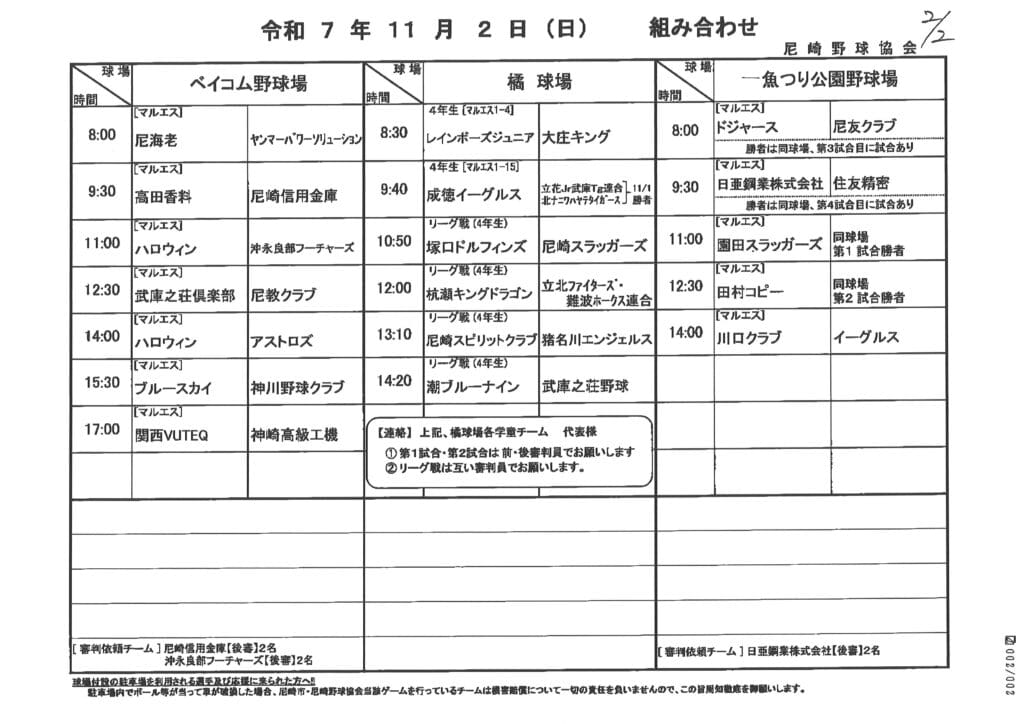 令和 7 年 11 月 2 日（日） 組み合わせ
2/2
尼崎野球協会
球場 時間 ベイコム野球場 球場 時間 橘 球場 球場 時間 一魚つり公園野球場
8:00 [マルエス] 尼海老 ヤンマーパワーソリューション
9:30 [マルエス] 高田香料 尼崎信用金庫
11:00 [マルエス] ハロウィン 沖永良部フーチャーズ
12:30 [マルエス] 武庫之荘倶楽部 尼教クラブ
14:00 [マルエス] ハロウィン アストロズ
15:30 [マルエス] ブルースカイ 神川野球クラブ
17:00 [マルエス] 関西VUTEQ 神崎高級工機
8:30 4年生 [マルエス1-4] レインボーズジュニア 大庄キング
9:40 4年生 [マルエス1-15] 成徳イーグルス 立花Jr武庫Tg連合 北ナニワハヤテタイガース 11/1 勝者
10:50 リーグ戦(4年生) 塚口ドルフィンズ 尼崎スラッガーズ
12:00 リーグ戦(4年生) 杭瀬キングドラゴン 立北ファイターズ・難波ホークス連合
13:10 リーグ戦(4年生) 尼崎スピリットクラブ 猪名川エンジェルス
14:20 リーグ戦(4年生) 潮ブルーナイン 武庫之荘野球
【連絡】 上記、橘球場各学童チーム 代表様
①第1試合・第2試合は 前・後審判員でお願いします
②リーグ戦は互い審判員でお願いします。
8:00 [マルエス] ドジャース 尼友クラブ
勝者は同球場、第3試合目に試合あり
9:30 [マルエス] 日亜鋼業株式会社 住友精密
勝者は同球場、第4試合目に試合あり
11:00 [マルエス] 園田スラッガーズ 同球場 第1試合勝者
12:30 [マルエス] 田村コピー 同球場 第2試合勝者
14:00 [マルエス] 川口クラブ イーグルス
[ 審判依頼チーム ] 尼崎信用金庫【後審】2名
沖永良部フーチャーズ【後審】2名
[ 審判依頼チーム ] 日亜鋼業株式会社【後審】2名
球場付設の駐車場を利用される選手及び応援に来られた方へ!!
駐車場内でボール等が当って車が破損した場合、尼崎市・尼崎野球協会当該ゲームを行っているチームは損害賠償について一切の責任を負いませんので、この旨周知徹底を御願いします。
002/002